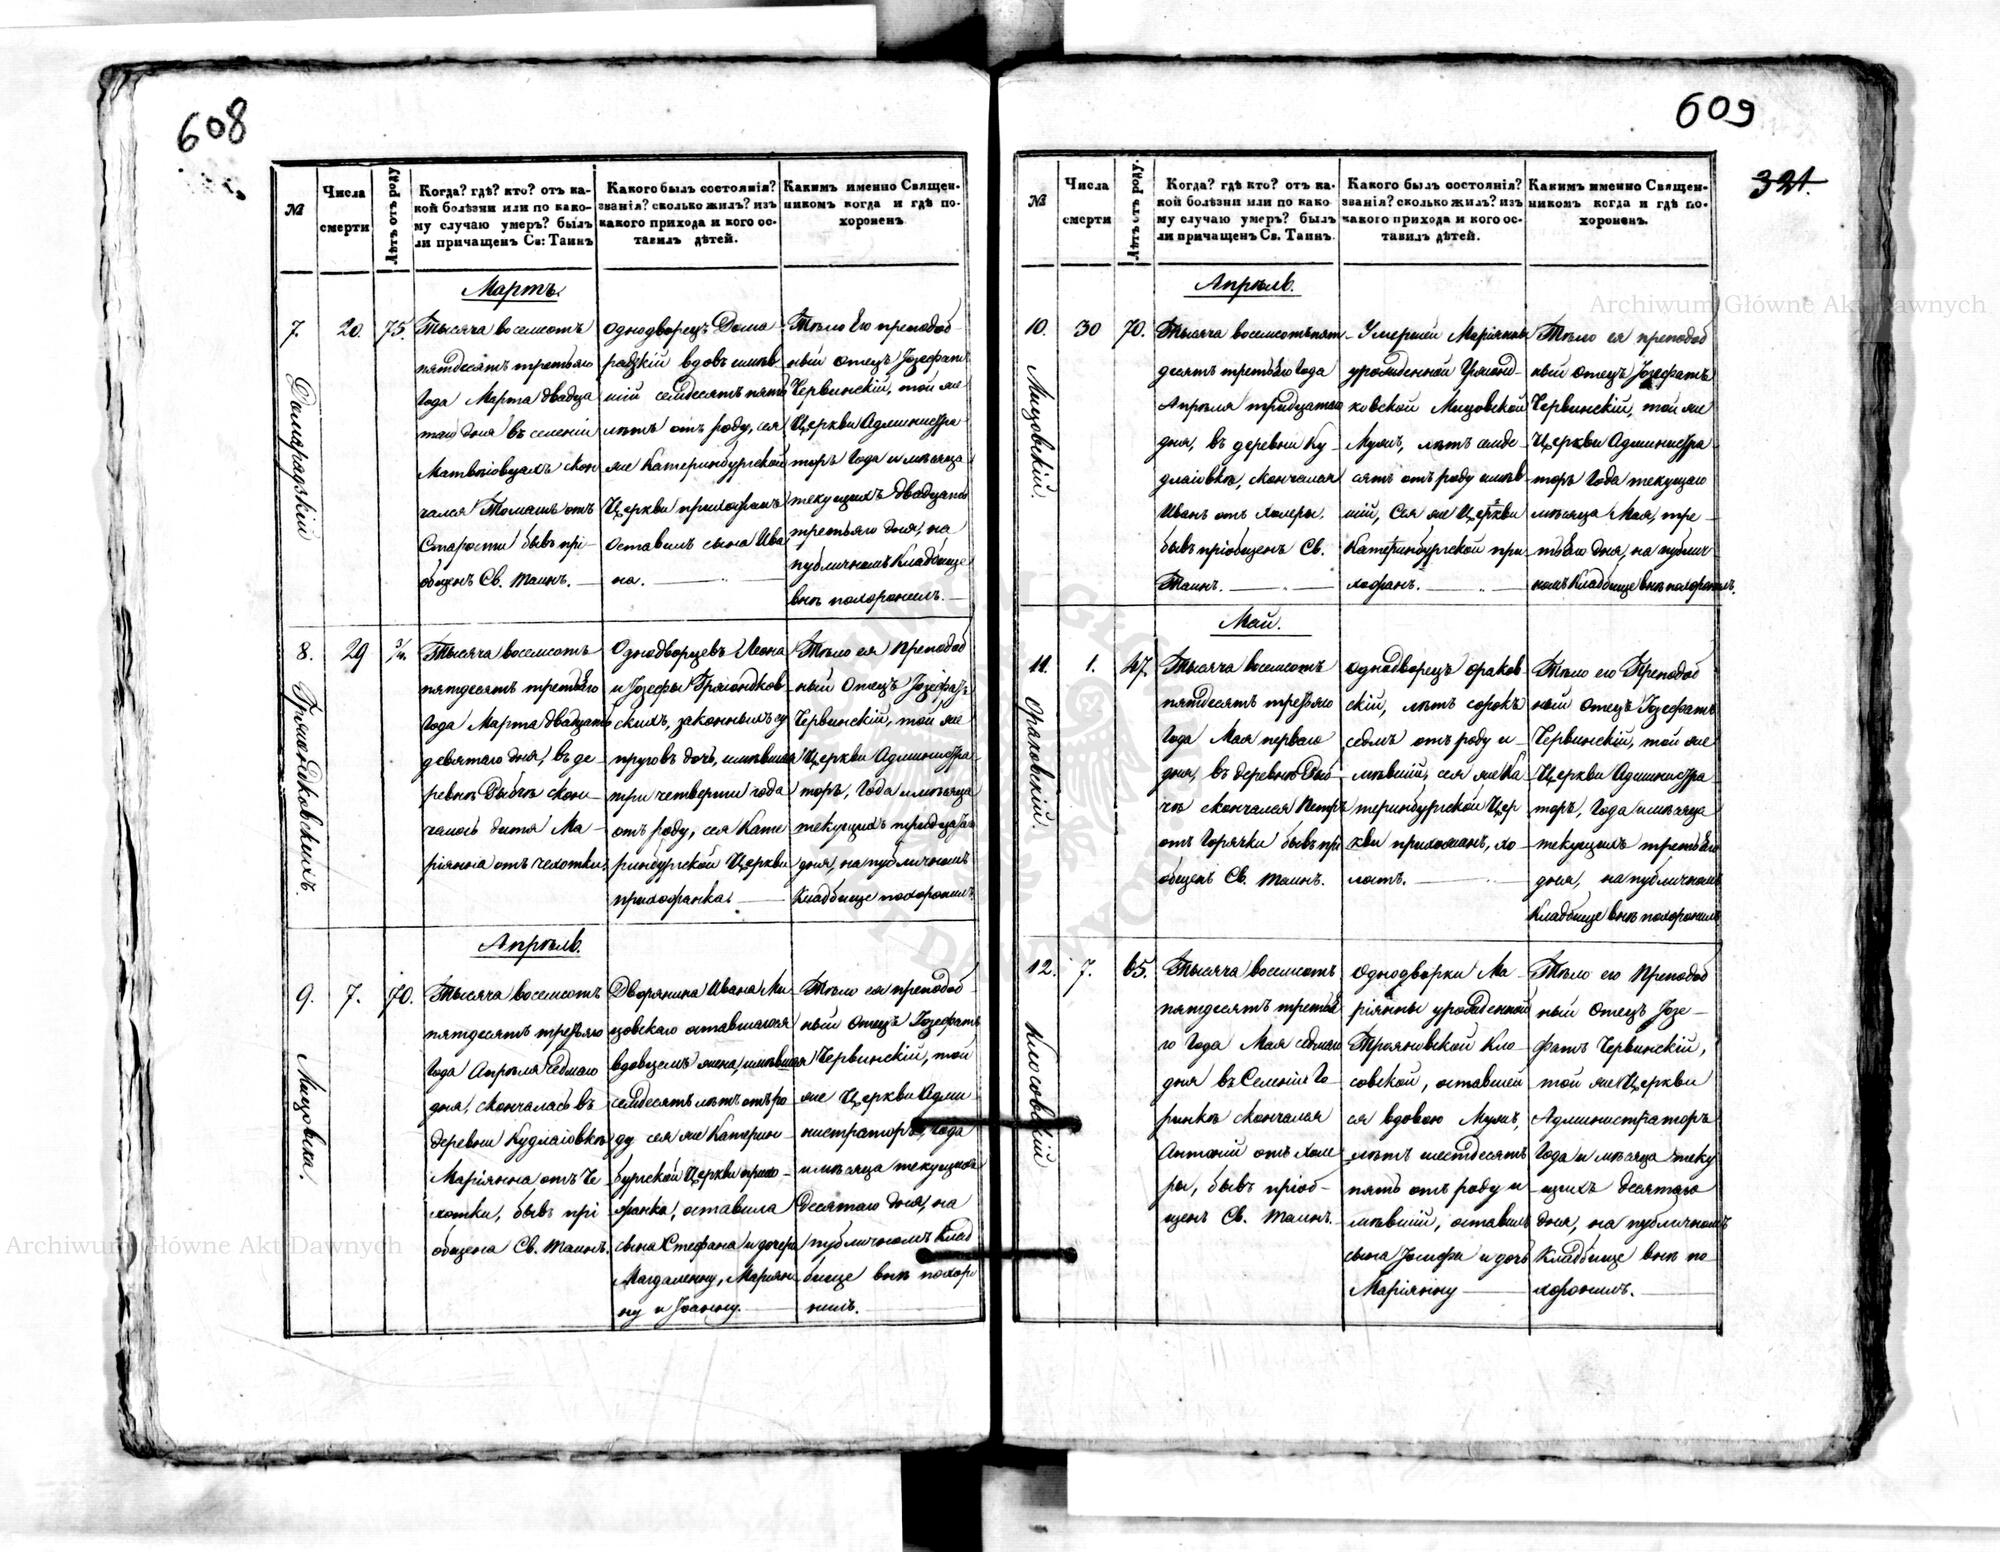 608
№
Числа
смерти
Лѣтъ отъ роду
Когда? гдѣ? кто? отъ ка-
кой болѣзни или по како-
му случаю умеръ? былъ
ли причащенъ Св: Таинъ
Какого былъ состоянія?
званія? сколько жилъ? изъ
какого прихода и кого ос-
тавилъ дѣтей.
Какимъ именно Священ-
никомъ когда и гдѣ по-
хороненъ
Мартъ.
7.
20.
75.
Тысяча восемсотъ
пятдесятъ третьяго
Года Марта двадца
таго дня въ селеніи
скон
чался Томашъ отъ
Старости бывъ прі-
общенъ Св. таинъ.
однодворецъ Дома
радзкій вдовъ имѣв
шій семдесятъ пять
лѣтъ отъ роду, сея
же Катеринбургской
Церкви прихожанъ
оставилъ сына Ива
на.
Тѣло Его преподоб-
ный отецъ Іозефатъ
Червинскій, той же
Церкви Администра
торъ Года и мѣсяца
текущихъ двадцать
третьяго дня, на
публичномъ Кладбище
внѣ похоронилъ.
Домарадзкій
8.
29
3/4.
Тысяча восемсотъ
пятдесятъ третьяго
Года Марта двадцать
девятаго дня, въ де
ревнѣ Дыбчѣ скон-
чалось дитя Ма-
ріянна отъ чехотки.
Однодворцевъ Леона
и Іозефы Гржондков
скихъ, законныхъ су
пруговъ дочь, имѣвшая
три четверти года
отъ роду, сея Кате
ринбургской Церкви
прихожанка.
Тѣло ея Преподоб
ный Отецъ Іозефатъ
Червинскій, той же
Церкви Администра
торъ, Года и мѣсяца
текущихъ тридцатаго
дня, на публичномъ
Кладбище похоронилъ.
Гржондковскихъ.
Апрѣль.
9.
7.
70.
Тысяча восемсотъ
пятдесятъ третьяго
Года Апрѣля седмаго
дня, скончалась въ
деревни Кудлаіовкѣ
Маріянна отъ Че
хотки, бывъ прі
общена Св. таинъ.
Дворянина Ивана Ми
цовскаго оставшагося
вдовцемъ жена, имѣвшая
семдесятъ лѣтъ отъ ро
ду сея же Катерин-
бургской Церкви прихо-
жанка, оставила
сына Стефана и дочери
Магдаленну, Маріян
ну и Іоанну.
Тѣло ея преподоб-
ный Отецъ Іозефатъ
Червинскій, той
же Церкви Адми
нистраторъ, Года
и мѣсяца текущихъ
Десятаго дня, на
публичномъ Клад
бище внѣ похоро
нилъ.
Мицовска.
609
321.
№
Числа
смерти
Лѣтъ отъ роду.
Когда? гдѣ кто? отъ ка-
кой болѣзни или по како-
му случаю умеръ? былъ
ли причащенъ Св. Таинъ
Какого былъ состоянія?
званія? сколько жилъ? изъ
какого прихода и кого ос-
тавилъ дѣтей.
Какимъ именно Священ-
никомъ когда и гдѣ по-
хороненъ.
Апрѣль.
10.
30
70.
Тысяча восемсотъ пят-
десятъ третьяго Года
Апрѣля тридцатаго
дня, въ деревни Ку
длаіовкѣ, скончался
Иванъ отъ холеры,
бывъ пріобщенъ Св.
Таинъ.
Умершей Маріянны
урожденной
Мицовской
Мужъ, лѣтъ семде
сятъ отъ роду имѣв
шій, Сея же Церкви
Катеринбургской при
хожанъ.
Тѣло ея преподоб
ный отецъ Іозефатъ
Червинскій, той же
Церкви Администра
торъ Года текущаго
мѣсяца Мая, тре-
тьяго дня, на публич
номъ Кладбище внѣ похоронилъ.
Мицовскій.
Май.
11.
1.
47.
Тысяча восемсотъ
пятдесятъ третьяго
Года Мая перваго
дня, въ деревнѣ Дыб
чѣ скончался Петръ
отъ Горячки бывъ прі
общенъ Св. таинъ.
однодворецъ Ораков
скій, лѣтъ сорокъ
седмъ отъ роду и-
мѣвшій, сея же Ка
теринбургской Цер
кви прихожанъ, хо-
лостъ.
Тѣло его Преподоб
ный отецъ Іозефатъ
Червинскій, той же
Церкви Администра
торъ, Года и мѣсяца
текущихъ третьяго
дня, на публичномъ
Кладбище внѣ похоронилъ
Ораковскій.
12.
7.
65.
Тысяча восемсотъ
пятдесятъ третья
го Года Мая седмаго
дня въ Селеніи Го-
ринкѣ скончался
Антоній отъ холе
ры, бывъ пріоб-
щенъ Св. таинъ.
Однодворки Ма-
ріянны урожденной
Трояновской Кло-
совской, оставшей
ся вдовою Мужъ,
лѣтъ шестдесятъ
пять отъ роду и
мѣвшій, оставилъ
сына Іосифа и дочь
Маріянну
Тѣло его Преподоб
ный Отецъ Іозе-
фатъ Червинскій,
той же Церкви
Администраторъ
Года и мѣсяца теку
щихъ десятаго
дня, на публичномъ
Кладбище внѣ по-
хоронилъ.
Клосовскій
Archiwum Główne Akt Dawnych
Archiwum Główne Akt Dawnych